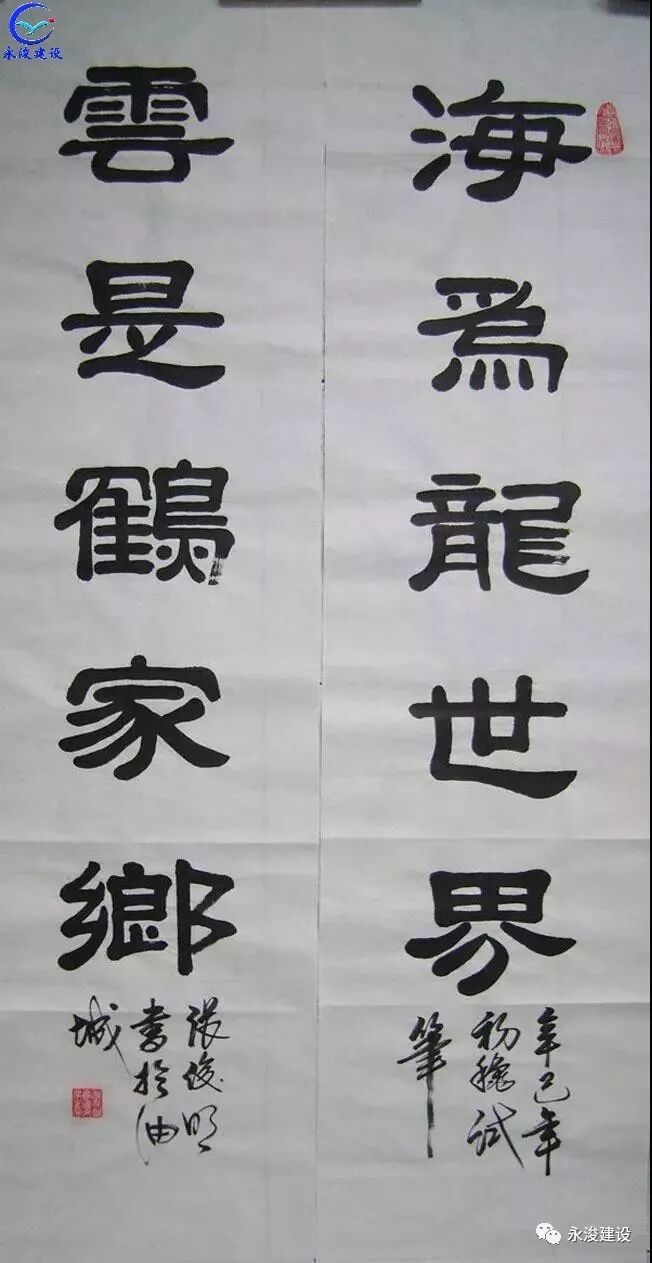 海爲龍世界
辛巳年
初穐試
筆
雲是鶴家鄉
張俊明
書於油
城
永浚建设
永浚建设